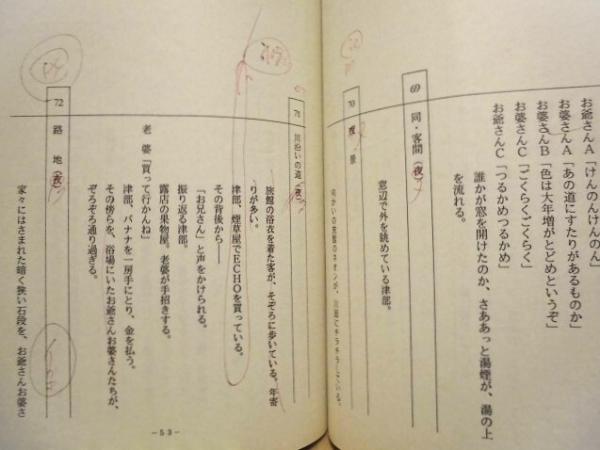 けんのんけんのん」
お爺さんA「あの道にすたりがあるものか」
お婆さんB「色は大年増がとどめというぞ」
お婆さんC「ごくらくごくらく」
お爺さんC「つるかめつるかめ」
誰かが窓を開けたのか、さああっと湯煙が、湯の上
を流れる。
69 同・客間(夜)
窓辺で外を眺めている津部。
70 夜景
向かいの旅館のネオンが、川面にチラチラしている。
71 川沿いの道(夜)
旅館の浴衣を着た客が、そぞろに歩いている。年寄
りが多い。
津部、煙草屋でECHOを買っている。
その背後から――
「お兄さん」と声をかけられる。
振り返る津部。
露店の果物屋。老婆が手招きする。
老婆「買って行かんね」
津部、バナナを一房手にとり、金を払う。
その傍らを、浴場にいたお爺さんお婆さんたちが、
ぞろぞろ通り過ぎる。
72 路地(夜)
家々にはさまれた暗く狭い石段を、お爺さんお婆さ
－53－